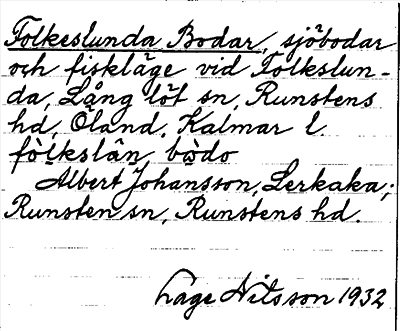 Folkeslunda Bodar, sjöbodar
och fiskläge vid Folkslun-
da, Lång löt sn, Runstens
hd, Öland, Kalmar l.
fòlkslân, bωdo
Albert Johansson, Lerkaka;
Runsten sn, Runstens hd.
Låge Nilsson 1932